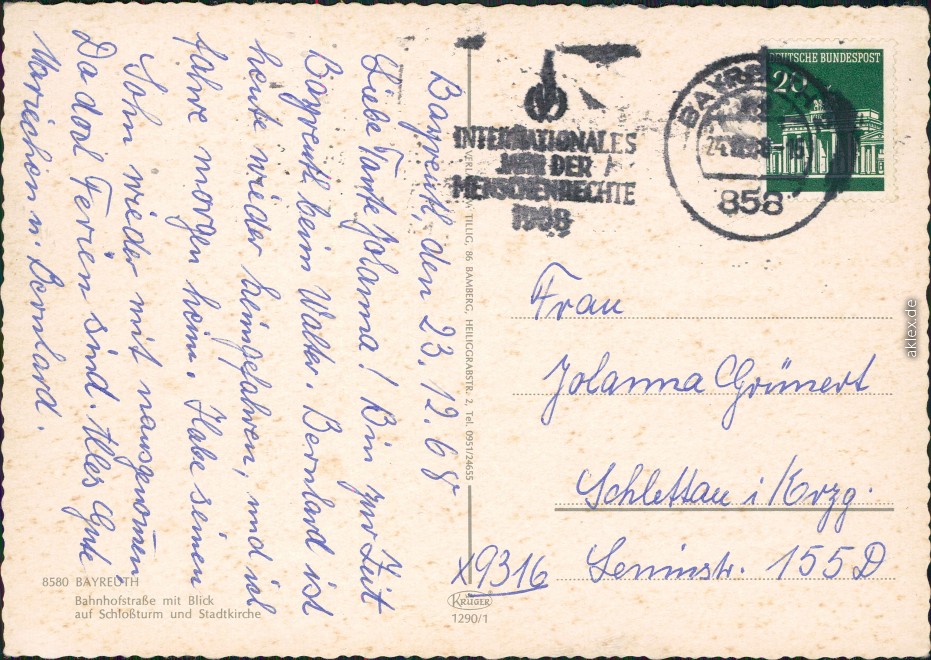 Bayreuth, den 23.12.68
Liebe Tante Johanna! Bin zur Zeit
Bayreuth beim Walter. Bernhard ist
heute wieder heimgefahren, und ich
fahre morgen heim. Habe seinen
Sohn wieder mit nausgenommen,
Da doch Ferien sind. Alles Gute
Mariechen u. Bernhard.
INTERNATIONALES
JAHR DER
MENSCHENRECHTE
1968
BAYREUTH
858
DEUTSCHE BUNDESPOST
20
Frau
Johanna Grünert
Schlettau i/Erzg.
X9316 Leninstr. 155D
TILLIG, 86 BAMBERG, HEILIGGRABSTR. 2, Tel. 0951/24655
8580 BAYREUTH
Bahnhofstraße mit Blick
auf Schloßturm und Stadtkirche
KRÜGER
1290/1
aklex.de